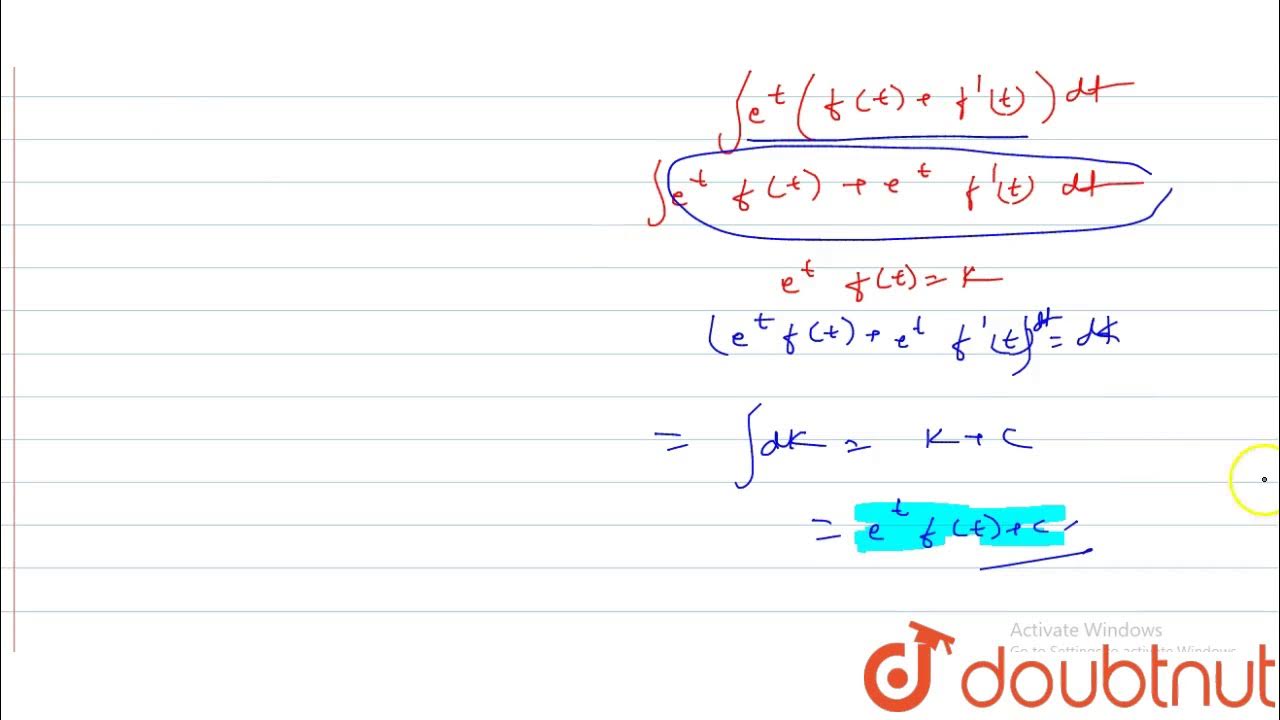 ∫e^t (f(t) + f'(t)) dt
∫e^t f(t) + e^t f'(t) dt
e^t f(t) = K
(e^t f(t) + e^t f'(t)) dt = dK
= ∫dK = K + C
= e^t f(t) + C
Activate Windows
Go to Settings to activate Windows.
doubtnut